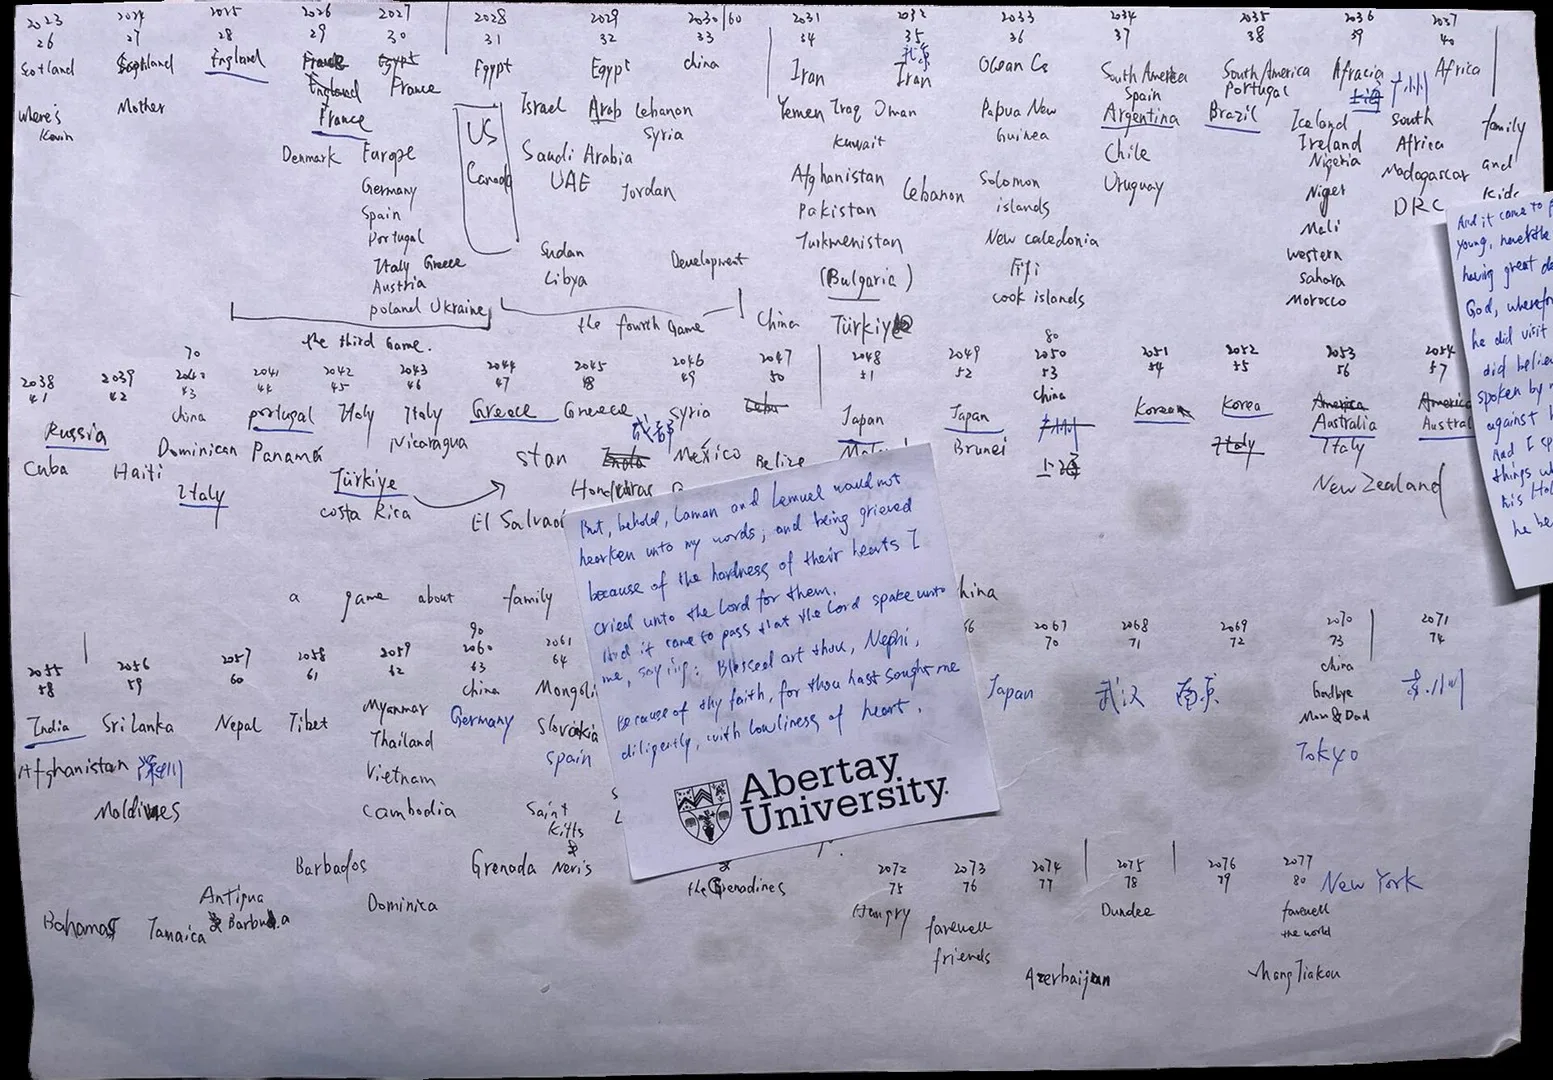 2023 2024 2025 2026 2027 2028 2029 2030/60 2031 2032 2033 2034 2035 2036 2037
26 27 28 29 30 31 32 33 34 35 36 37 38 39 40
Scotland Scotland England France Egypt Egypt Egypt china Iran Iran Ocean Cs South America South America Africa
England France Spain Portugal
where's Mother France US Israel Arab Lebanon Yemen Iraq Oman Papua New Argentina Brazil Iceland South family
Kevin Syria Kuwait Guinea Ireland Africa and
Denmark Europe Canada Saudi Arabia Afghanistan Lebanon Solomon Chile Nigeria Madagascar kids
Germany UAE Jordan Pakistan islands Uruguay Niger DRC
Spain Turkmenistan New Caledonia Mali
Portugal Sudan Development (Bulgaria) Fiji western
Italy Greece Libya cook islands Sahara
Austria Morocco
poland Ukraine
the third Game. the fourth Game China Türkiye
70 80
2038 2039 2040 2041 2042 2043 2044 2045 2046 2047 2048 2049 2050 2051 2052 2053 2054
41 42 43 44 45 46 47 48 49 50 51 52 53 54 55 56 57
Russia china portugal Italy Italy Greece Greece Syria Japan Japan china Korean Korea America America
成都 广州 Australia
Cuba Haiti Dominican Panama Nicaragua stan India México Belize Brunei 上海 Italy Italy
Italy Türkiye Honduras New Zealand
costa Rica El Salvador
a game about family
90
2055 2056 2057 2058 2059 2060 2061 2067 2068 2069 2070 2071
58 59 60 61 62 63 64 70 71 72 73 74
India Sri Lanka Nepal Tibet Myanmar china Japan 武汉 南京 china
Germany Goodbye
Afghanistan 深圳 Thailand Slovakia Mom & Dad
Vietnam Spain Tokyo
Maldives Cambodia Saint
Kitts
Barbados Grenada & Nevis
Antigua Dominica & the Grenadines
Bahamas Jamaica & Barbuda
2072 2073 2074 2075 2076 2077
75 76 77 78 79 80 New York
Hungry farewell Dundee farewell
friends the world
Azerbaijan zhangJiakou
But, behold, Laman and Lemuel would not
hearken unto my words; and being grieved
because of the hardness of their hearts I
cried unto the Lord for them.
And it came to pass that the Lord spake unto
me, saying: Blessed art thou, Nephi,
because of thy faith, for thou hast sought me
diligently, with lowliness of heart.
Abertay
University.
And it came to
young,
having great
God, wherefore
he did visit
did believe
spoken by
against
And I
things
his
he